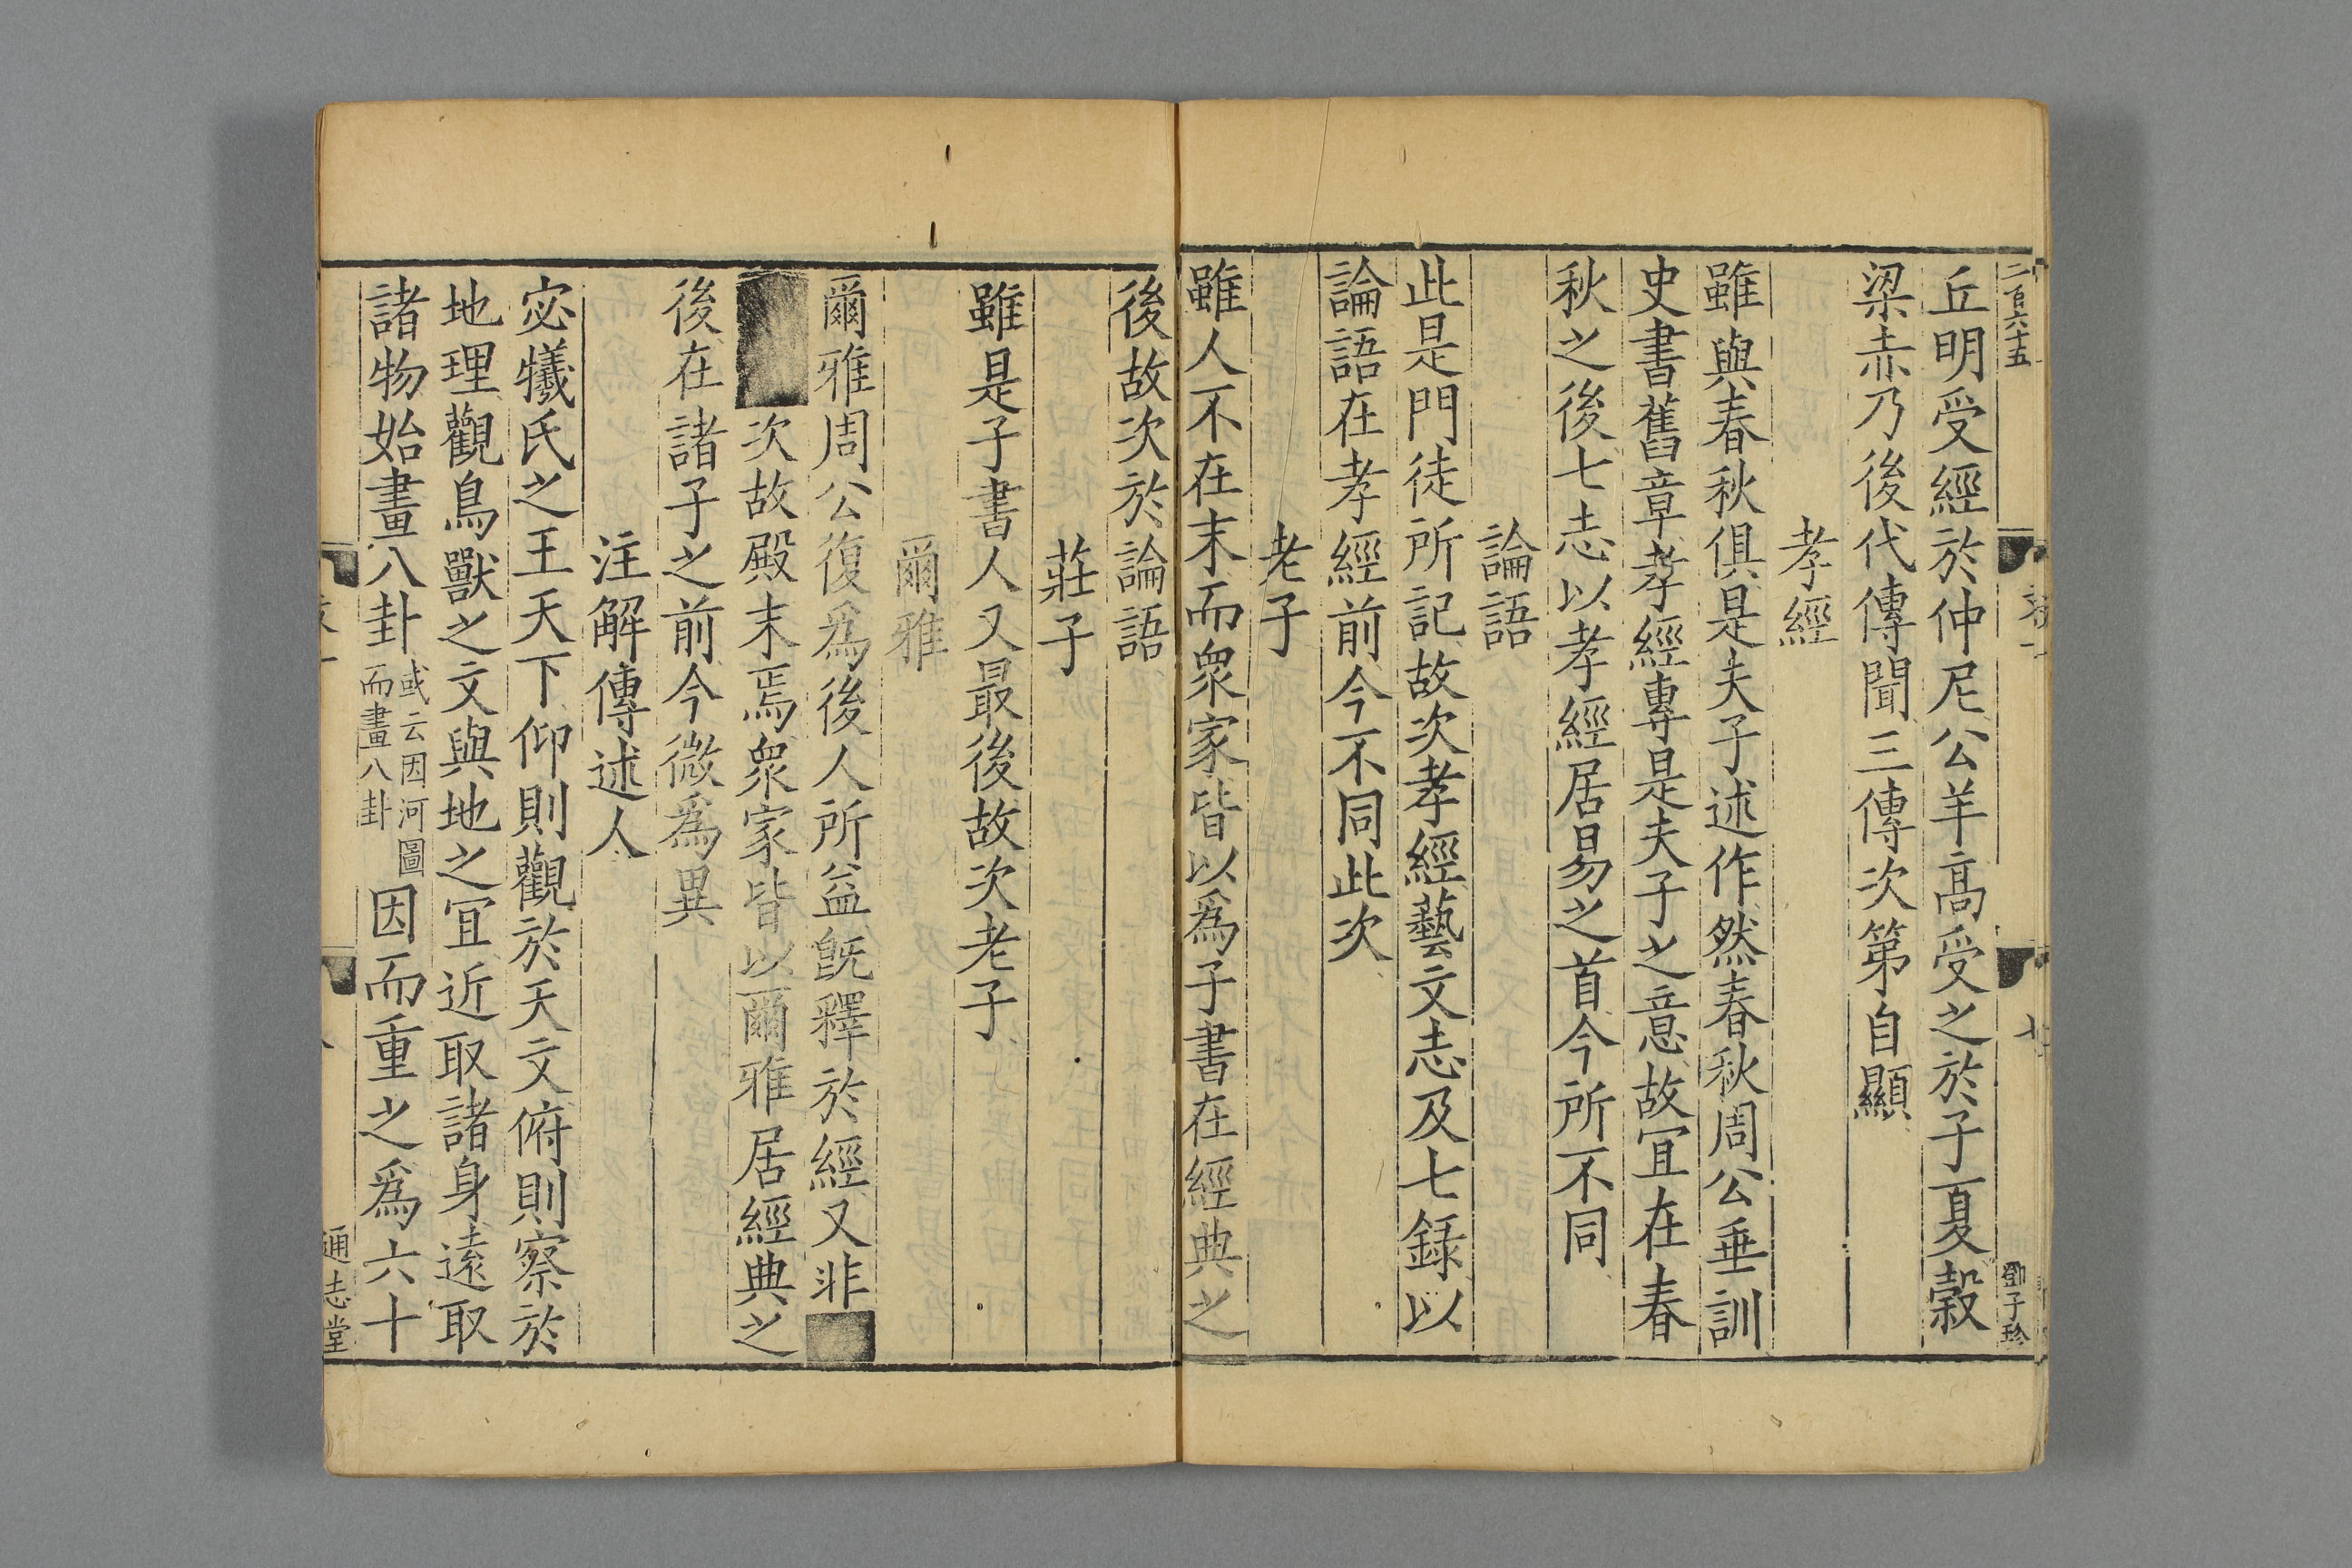 二百六十五
鄧子珍
丘明受經於仲尼公羊高受之於子夏穀
梁赤乃後代傳聞三傳次第自顯
孝經
雖與春秋俱是夫子述作然春秋周公垂訓
史書舊章孝經專是夫子之意故宜在春
秋之後七志以孝經居易之首今所不同
論語
此是門徒所記故次孝經藝文志及七録以
論語在孝經前今不同此次
老子
雖人不在末而衆家皆以爲子書在經典之
後故次於論語
莊子
雖是子書人又最後故次老子
爾雅
爾雅周公復爲後人所益旣釋於經又非
次故殿末焉衆家皆以爾雅居經典之
後在諸子之前今微爲異
注解傳述人
宓犧氏之王天下仰則觀於天文俯則察於
地理觀鳥獸之文與地之宜近取諸身遠取
諸物始畫八卦或云因河圖而畫八卦因而重之爲六十
通志堂